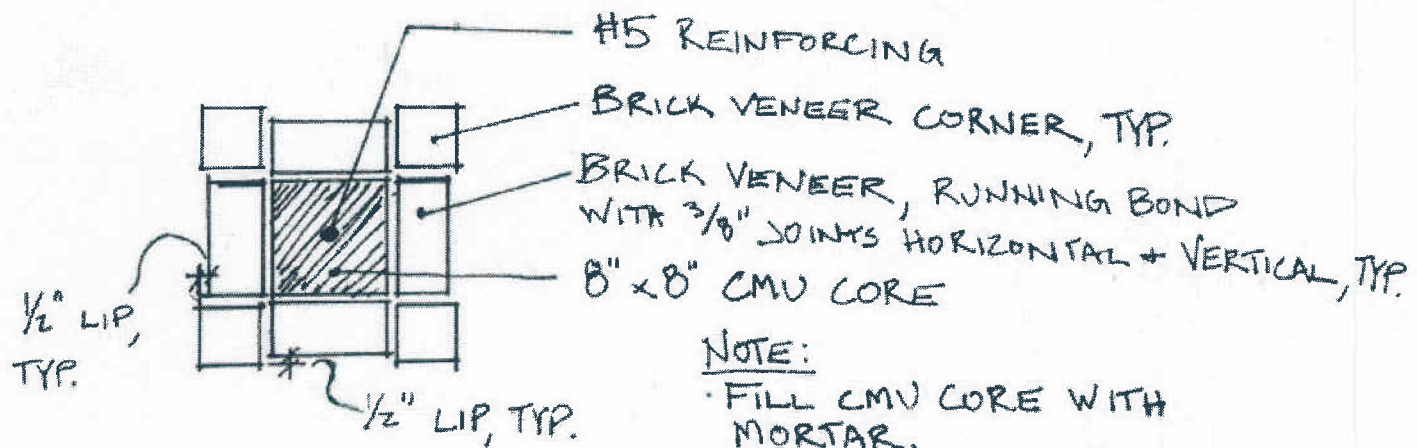 #5 REINFORCING
BRICK VENEER CORNER, TYP.
BRICK VENEER, RUNNING BOND
WITH 3/8" JOINTS HORIZONTAL + VERTICAL, TYP.
8" x 8" CMU CORE
1/2" LIP,
TYP.
1/2" LIP, TYP.
NOTE:
· FILL CMU CORE WITH
MORTAR.